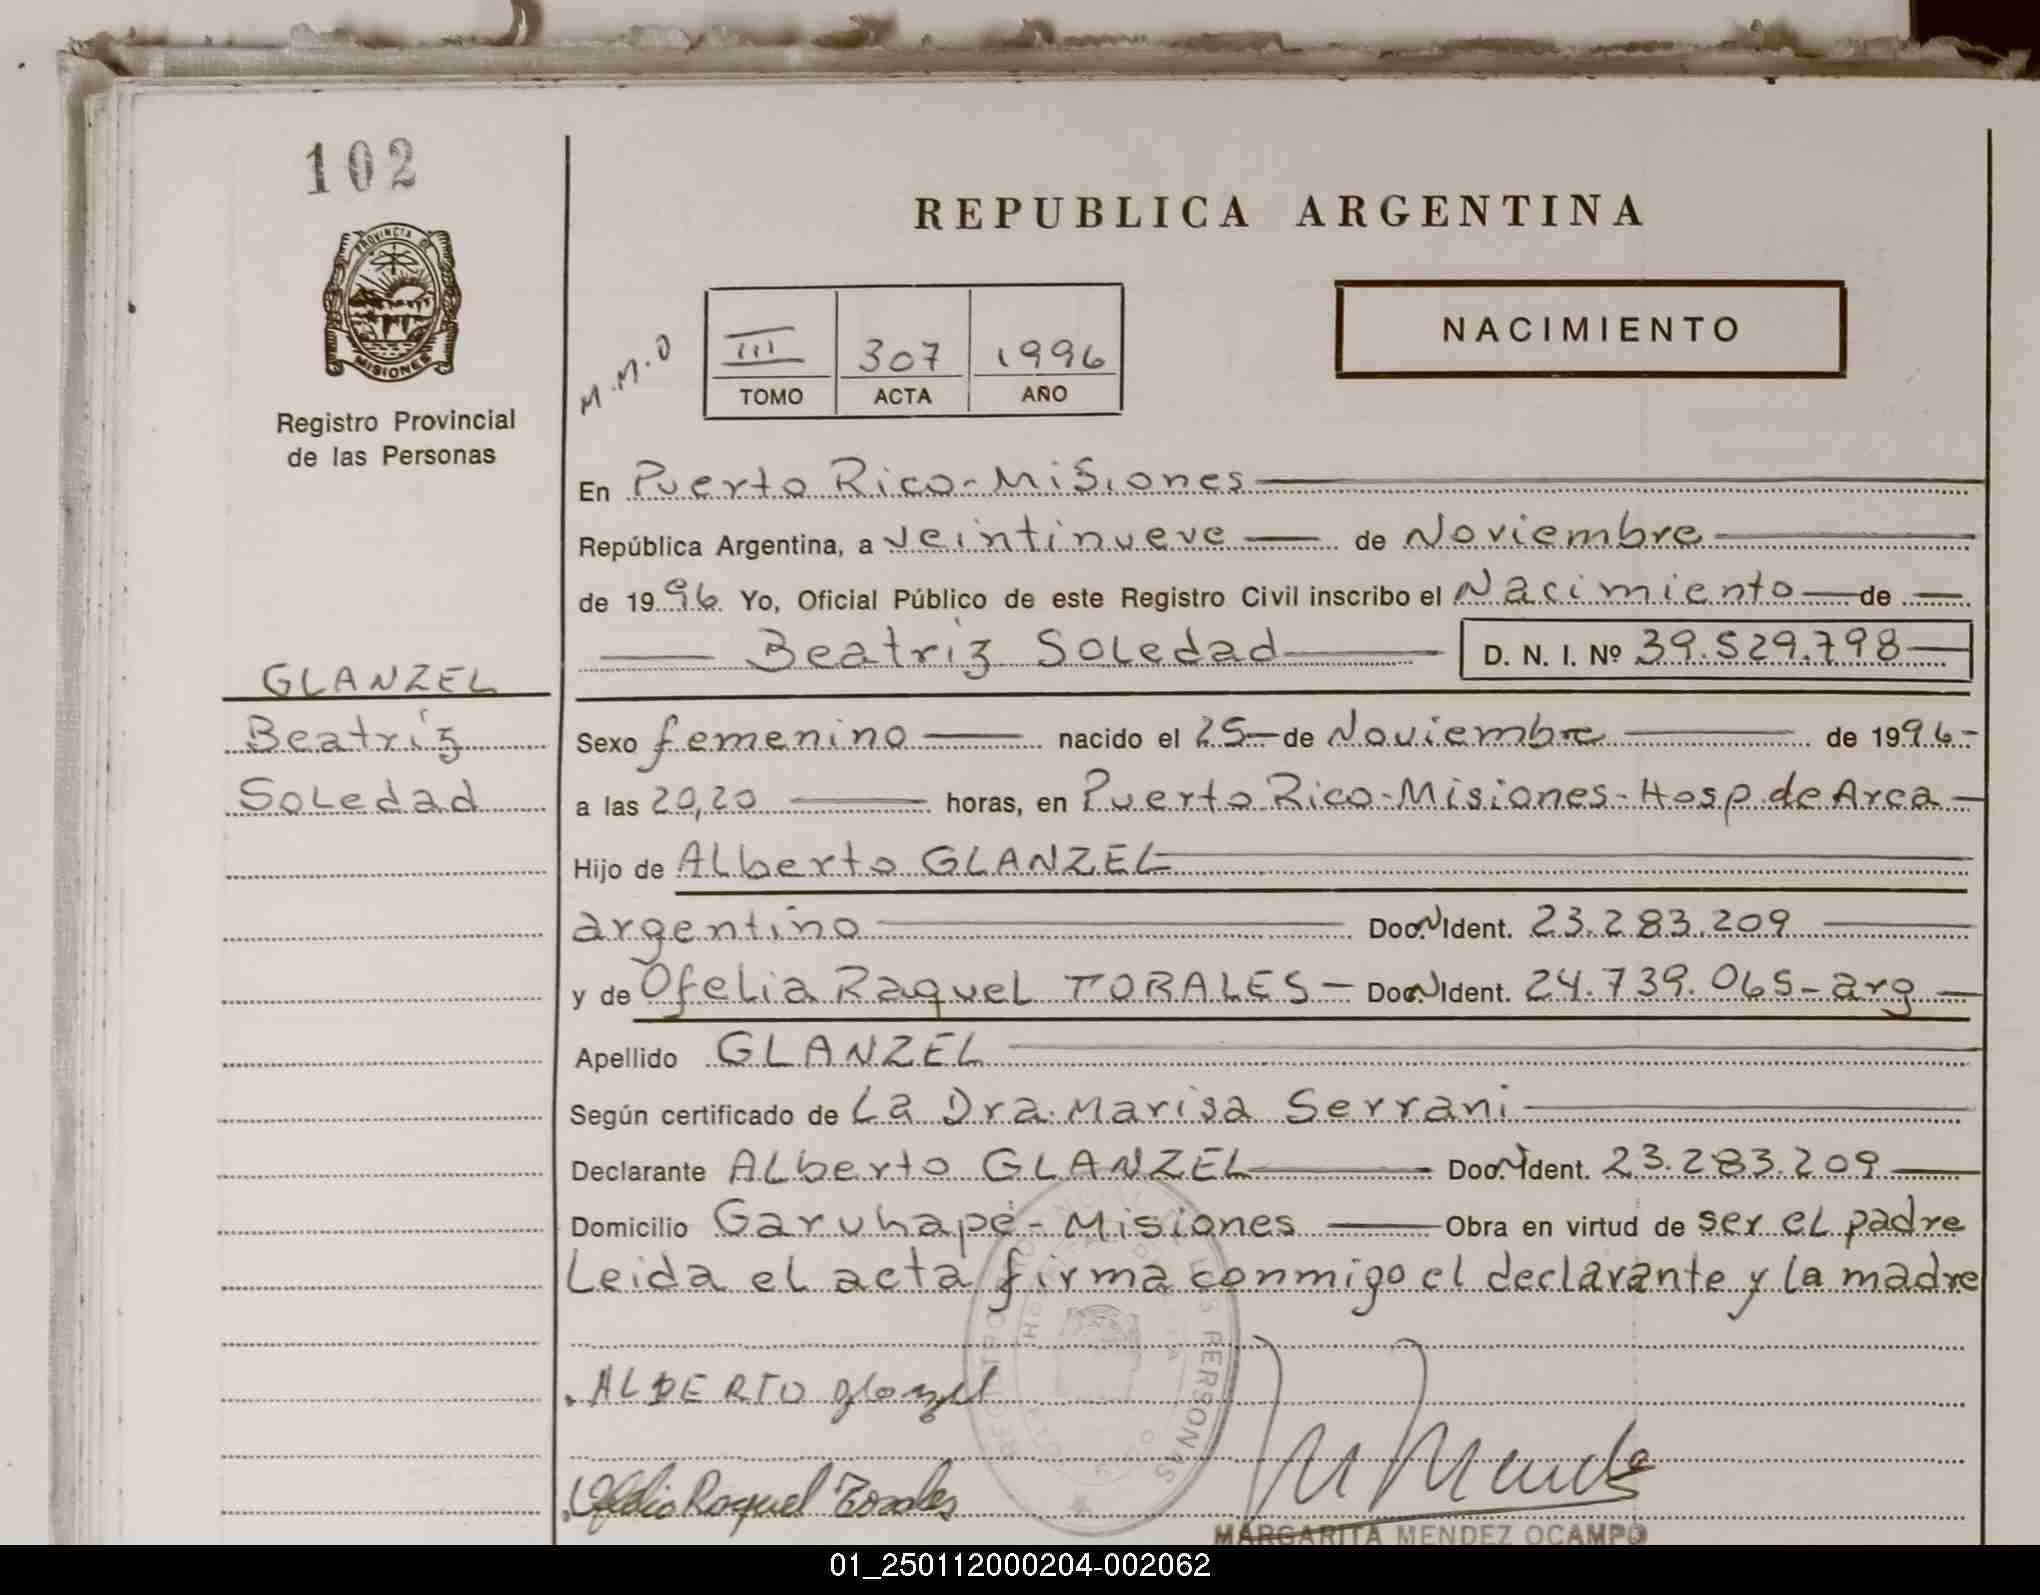 102
PROVINCIA DE
MISIONES
Registro Provincial
de las Personas
REPUBLICA ARGENTINA
NACIMIENTO
M.M.O
III 307 1996
TOMO ACTA AÑO
En Puerto Rico-Misiones
República Argentina, a veintinueve de Noviembre
de 1996 Yo, Oficial Público de este Registro Civil inscribo el Nacimiento de
Beatríz Soledad D. N. I. Nº 39.529.798
GLANZEL
Beatríz
Soledad
Sexo femenino nacido el 25 de Noviembre de 1996
a las 20,20 horas, en Puerto Rico-Misiones-Hosp.de Arca
Hijo de Alberto GLANZEL
argentino Doc.N Ident. 23.283.209
y de Ofelia Raquel TORALES Doc.N Ident. 24.739.065-arg
Apellido GLANZEL
Según certificado de La Dra.Marisa Serrani
Declarante Alberto GLANZEL Doc.N Ident. 23.283.209
Domicilio Garuhapé-Misiones Obra en virtud de ser el padre
Leida el acta firma conmigo el declarante y la madre
ALBERTO Glanzel
Ofelia Raquel Torales
M Mendez
MARGARITA MENDEZ OCAMPO
01_250112000204-002062